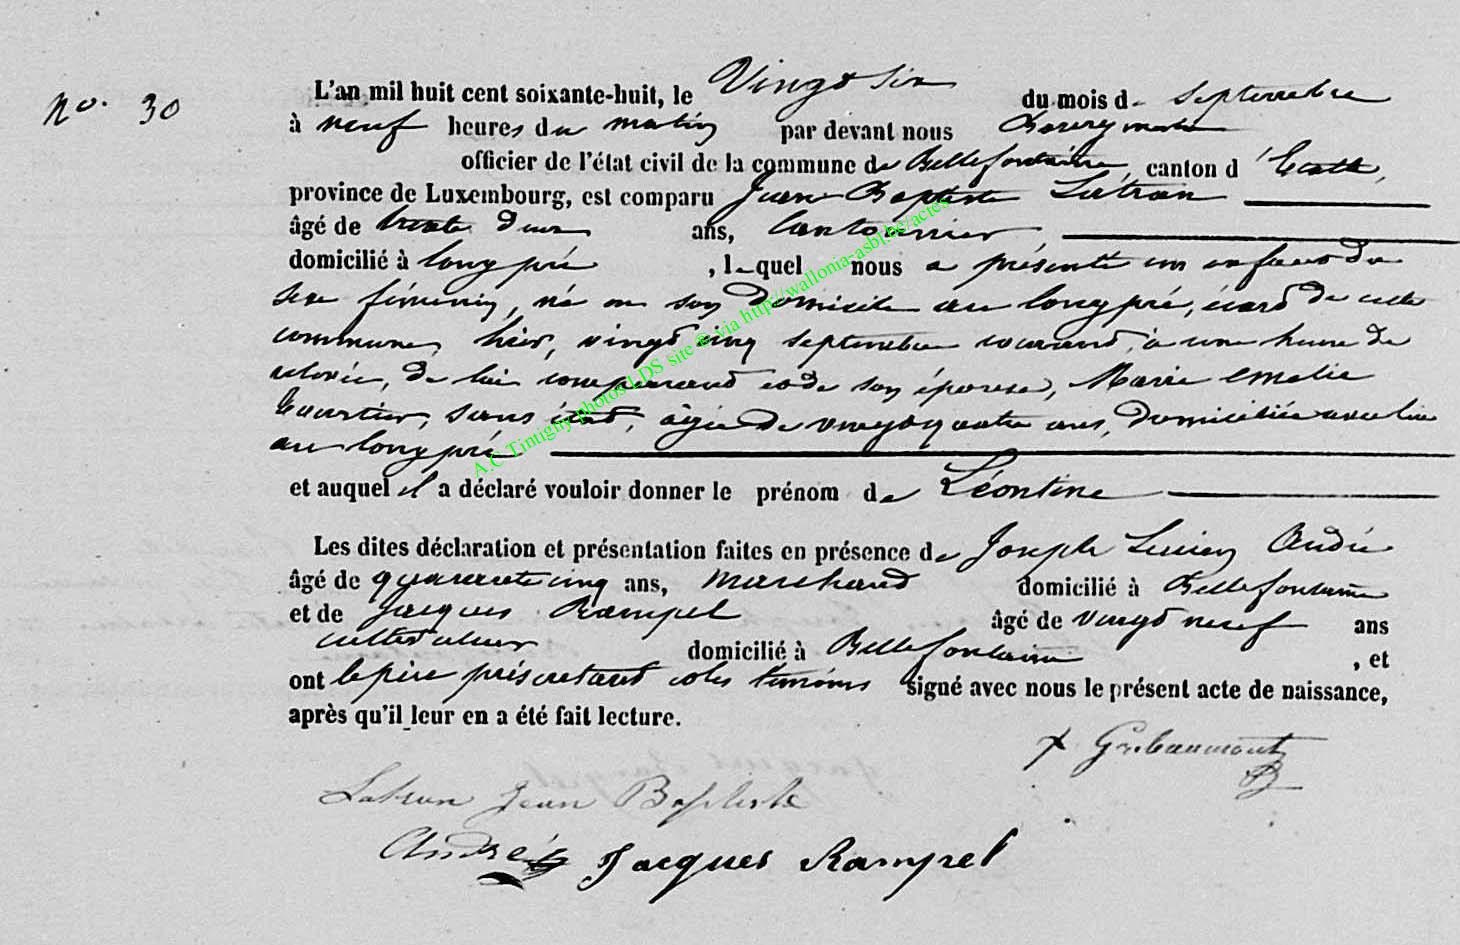 No. 30
L'an mil huit cent soixante-huit, le Vingt six du mois de Septembre
à neuf heures du matin par devant nous Bourgmestre
officier de l'état civil de la commune de Bellefontaine, canton d'Etalle,
province de Luxembourg, est comparu Jean Baptiste Latran
âgé de trente deux ans, Cantonnier
domicilié à long pré, lequel nous a présenté un enfant du
sexe féminin, né en son domicile au long pré, écart de cette
commune, hier, vingt cinq septembre courant, à une heure de
relevée, de lui comparant et de son épouse, Marie Emelie
sans état, âgée de vingt quatre ans, domiciliée avec lui
au long pré
et auquel il a déclaré vouloir donner le prénom de Léontine
Les dites déclaration et présentation faites en présence de Joseph Lucien André
âgé de quarante cinq ans, Marchand domicilié à Bellefontaine
et de Jacques Rampel âgé de vingt neuf ans
cultivateur domicilié à Bellefontaine, et
ont le père présentant et les témoins signé avec nous le présent acte de naissance,
après qu'il leur en a été fait lecture.
Gribaumont
Latran Jean Baptiste
André Jacques Rampel
A.C Tintigny photos LDS site © via http://wallonia-asbl.be/actes